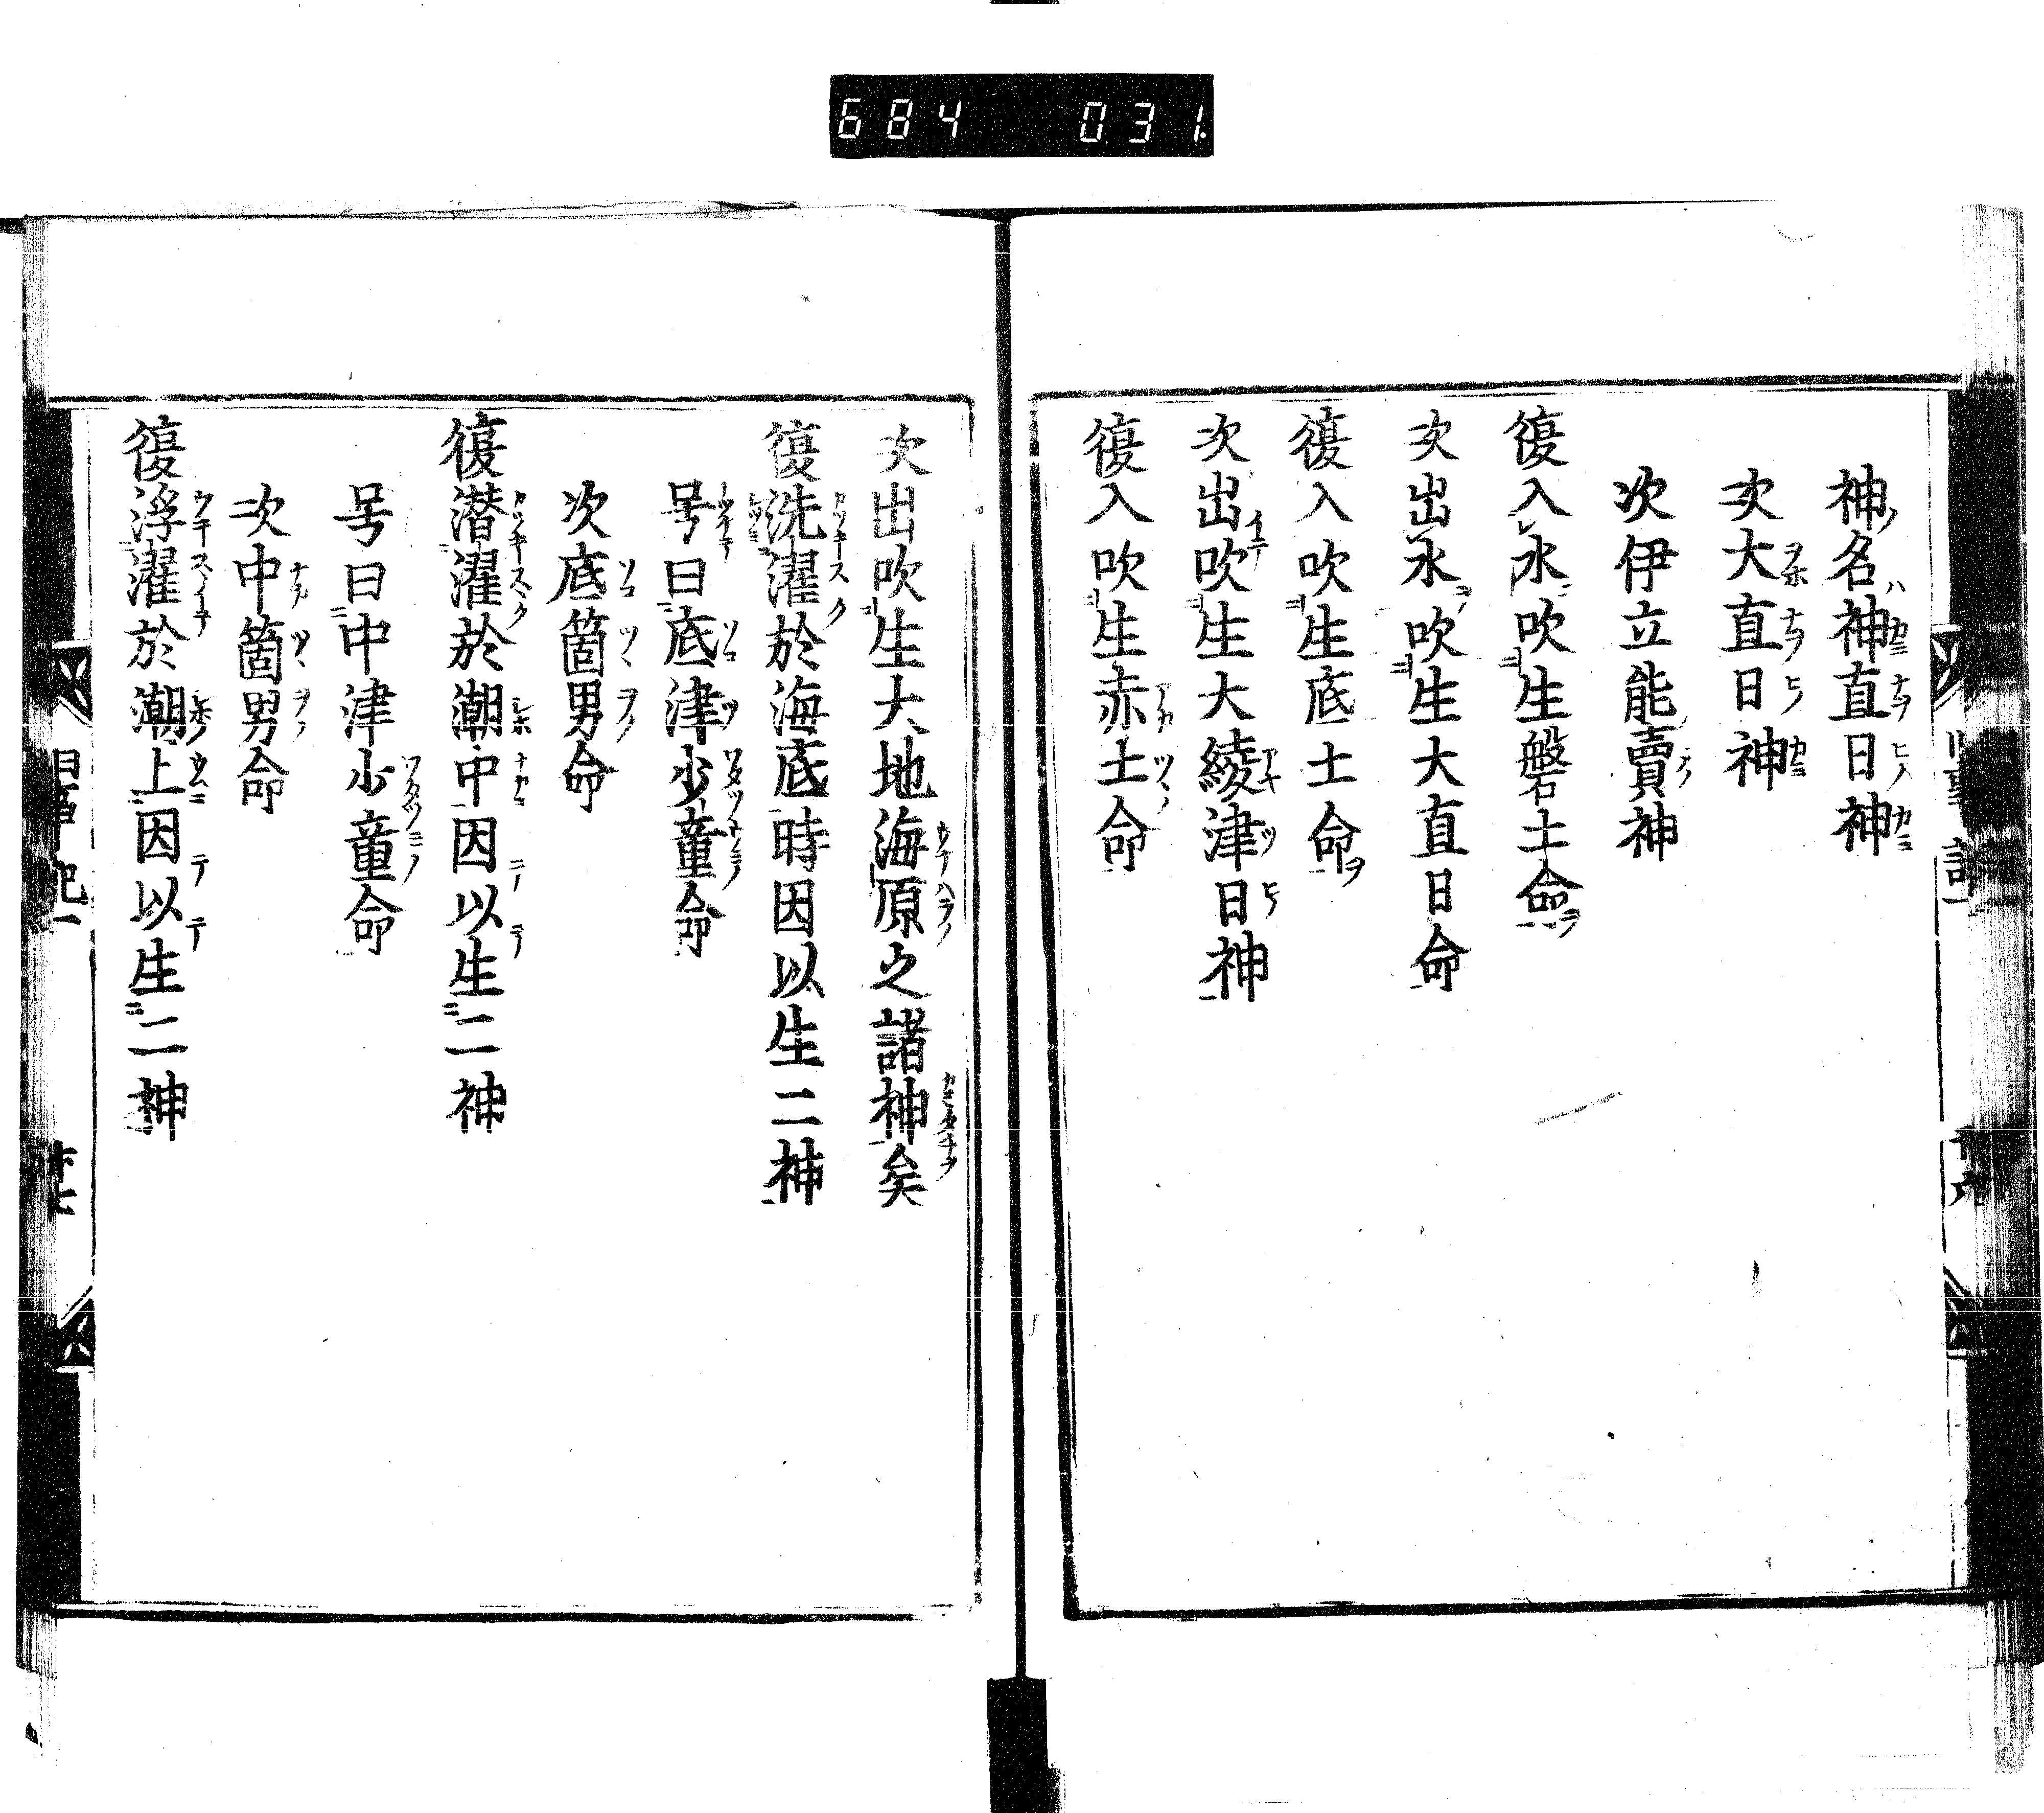 684 031
神名神直日神
次大直日神
次伊立能賣神
復入水吹生磐土命
次出水吹生大直日命
復入吹生底土命
次出吹生大綾津日神
復入吹生赤土命
次出吹生大地海原之諸神矣
復洗濯於海底時因以生二神
号曰底津少童命
次底箇男命
復潜濯於潮中因以生二神
号曰中津少童命
次中箇男命
復浮濯於潮上因以生二神